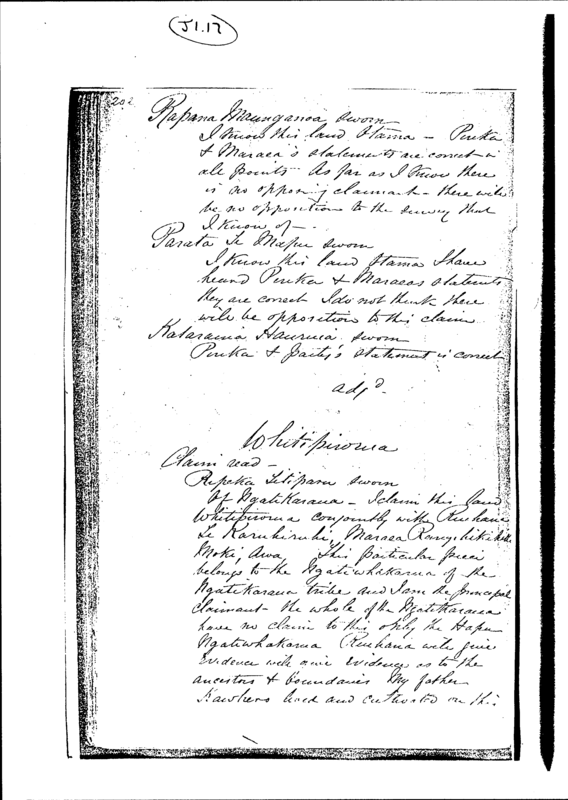 J1.17
202
Rapana Maunganoa sworn
I know this land Otama – Peruka
& Maraea's statements are correct in
all points As far as I know there
is no opposing claimant – there will
be no opposition to the survey that
I know of –
Parata Te Mapu sworn
I know this land Otama I have
heard Peruka & Maraeas statements
they are correct I do not think there
will be opposition to this claim
Kataraina Hauruia sworn
Peruka & party's statement is correct
adjd.
Whitipirorua
Claim read –
Ripeka Titipara sworn
Of Ngatikaraua – I claim this land
Whitipirorua conjointly with Ruihana
Te Karuhiruhi, Maraea
Moki, Awa, This particular piece
belongs to the Ngatiwhakarua of the
Ngatikaraua tribe and I am the principal
claimant the whole of the Ngatikaraua
have no claim to this only the Hapu
Ngatiwhakarua Ruihana will give
evidence will give evidence as to the
ancestors & boundaries My father
Rawhero lived and cultivated on this